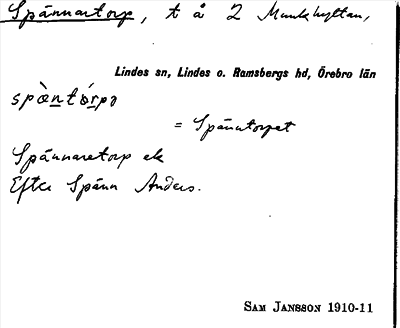 Spännartorp, t å 2 Munkhyttan,
Lindes sn, Lindes o. Ramsbergs hd, Örebro län
spòntórpə
= Spänntorpet
Spännaretorp ek
Efter Spänn Anders.
SAM JANSSON 1910-11